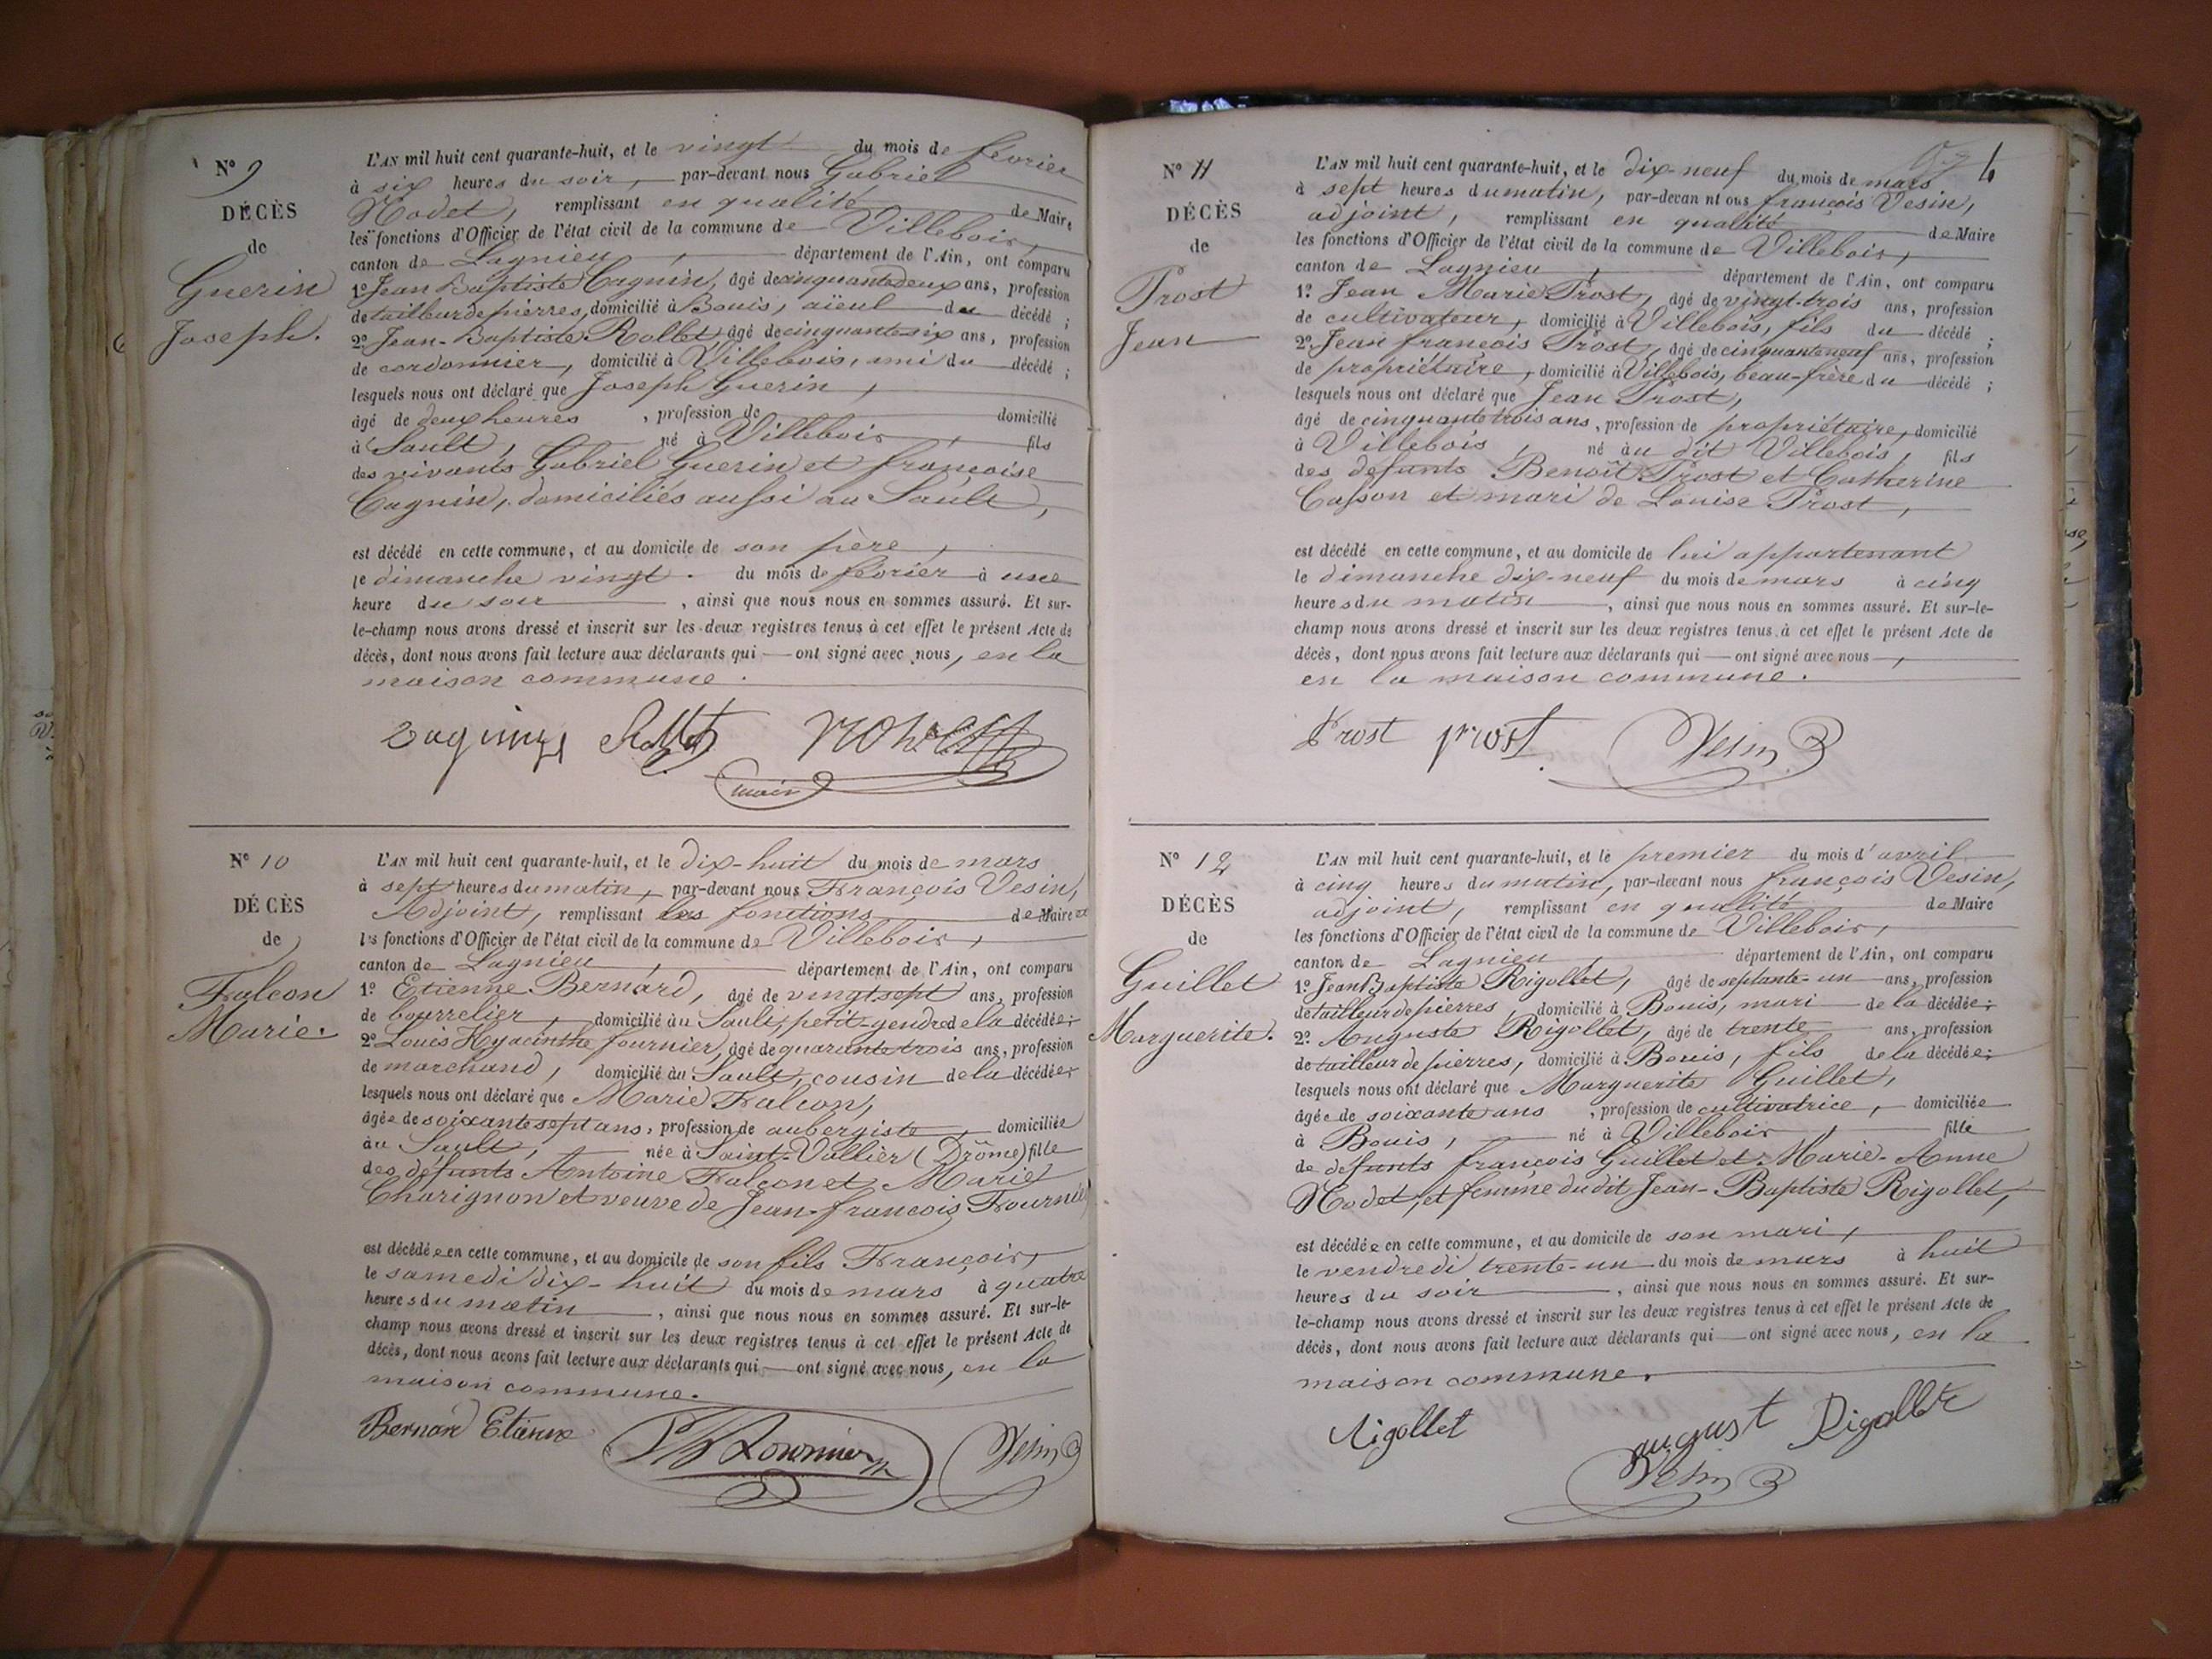 Nº 9
DÉCÈS
de
Guerin
Joseph.
L'AN mil huit cent quarante-huit, et le vingt du mois de février
à six heures du soir, par-devant nous Gabriel
Nodet, remplissant en qualité de Maire
les fonctions d'Officier de l'état civil de la commune de Villebois,
canton de Lagnieu, département de l'Ain, ont comparu
1º Jean Baptiste Cagnin, âgé de cinquante deux ans, profession
de tailleur de pierres, domicilié à Bouis, aïeul du décédé ;
2º Jean-Baptiste Rollet, âgé de cinquante six ans, profession
de cordonnier, domicilié à Villebois, ami du décédé ;
lesquels nous ont déclaré que Joseph Guerin,
âgé de deux heures, profession de domicilié
à Sault, né à Villebois, fils
des vivants Gabriel Guerin et françoise
Cagnin, domiciliés aussi au Sault,
est décédé en cette commune, et au domicile de son père,
le dimanche vingt. du mois de février à une
heure du soir, ainsi que nous nous en sommes assuré. Et sur-
le-champ nous avons dressé et inscrit sur les deux registres tenus à cet effet le présent Acte de
décès, dont nous avons fait lecture aux déclarants qui — ont signé avec nous, en la
maison commune.
maire
Nº 10
DÉCÈS
de
Falcon
Marie.
L'AN mil huit cent quarante-huit, et le dix-huit du mois de mars
à sept heures du matin, par-devant nous François Vesin,
Adjoint, remplissant les fonctions de Maire et
les fonctions d'Officier de l'état civil de la commune de Villebois,
canton de Lagnieu, département de l'Ain, ont comparu
1º Etienne Bernard, âgé de vingt sept ans, profession
de bourrelier, domicilié au Sault, petit-gendre de la décédée ;
2º Louis Hyacinthe fournier, âgé de quarante trois ans, profession
de marchand, domicilié au Sault, cousin de la décédée ;
lesquels nous ont déclaré que Marie Falcon,
âgée de soixante sept ans, profession de aubergiste, domiciliée
au Sault, née à Saint-Vallier (Drôme) fille
des défunts Antoine Falcon et Marie
Charignon et veuve de Jean-françois Fournier
est décédée en cette commune, et au domicile de son fils François,
le samedi dix-huit du mois de mars à quatre
heures du matin, ainsi que nous nous en sommes assuré. Et sur-le-
champ nous avons dressé et inscrit sur les deux registres tenus à cet effet le présent Acte de
décès, dont nous avons fait lecture aux déclarants qui — ont signé avec nous, en la
maison commune.
Bernard Etienne Vesin
4
Nº 11
DÉCÈS
de
Prost
Jean
L'AN mil huit cent quarante-huit, et le dix-neuf du mois de mars
à sept heures du matin, par-devan nt ous françois Vesin,
adjoint, remplissant en qualité de Maire
les fonctions d'Officier de l'état civil de la commune de Villebois,
canton de Lagnieu, département de l'Ain, ont comparu
1º. Jean Marie Prost, âgé de vingt-trois ans, profession
de cultivateur, domicilié à Villebois, fils du décédé ;
2º. Jean françois Prost, âgé de cinquante neuf ans, profession
de propriétaire, domicilié à Villebois, beau-frère du décédé ;
lesquels nous ont déclaré que Jean Prost,
âgé de cinquante trois ans, profession de propriétaire, domicilié
à Villebois, né au dit Villebois, fils
des defunts Benoît Prost et Catherine
Casson et mari de Louise Prost,
est décédé en cette commune, et au domicile de lui appartenant
le dimanche dix-neuf du mois de mars à cinq
heures du matin, ainsi que nous nous en sommes assuré. Et sur-le-
champ nous avons dressé et inscrit sur les deux registres tenus à cet effet le présent Acte de
décès, dont nous avons fait lecture aux déclarants qui — ont signé avec nous,
en la maison commune.
Prost prost Vesin
Nº 12
DÉCÈS
de
Guillet
Marguerite.
L'AN mil huit cent quarante-huit, et le premier du mois d'avril
à cinq heures du matin, par-devant nous françois Vesin,
adjoint, remplissant en qualité de Maire
les fonctions d'Officier de l'état civil de la commune de Villebois,
canton de Lagnieu, département de l'Ain, ont comparu
1º. Jean Baptiste Rigollet, âgé de septante-un ans, profession
de tailleur de pierres, domicilié à Bouis, mari de la décédée ;
2º. Auguste Rigollet, âgé de trente ans, profession
de tailleur de pierres, domicilié à Bouis, fils de la décédée ;
lesquels nous ont déclaré que Marguerite Guillet,
âgée de soixante ans, profession de cultivatrice, domiciliée
à Bouis, né à Villebois, fille
de defunts françois Guillet et Marie-Anne
Nodet, et femme du dit Jean-Baptiste Rigollet,
est décédée en cette commune, et au domicile de son mari,
le vendredi trente-un du mois de mars à huit
heures du soir, ainsi que nous nous en sommes assuré. Et sur-
le-champ nous avons dressé et inscrit sur les deux registres tenus à cet effet le présent Acte de
décès, dont nous avons fait lecture aux déclarants qui — ont signé avec nous, en la
maison commune.
Rigollet august Rigollet
Vesin